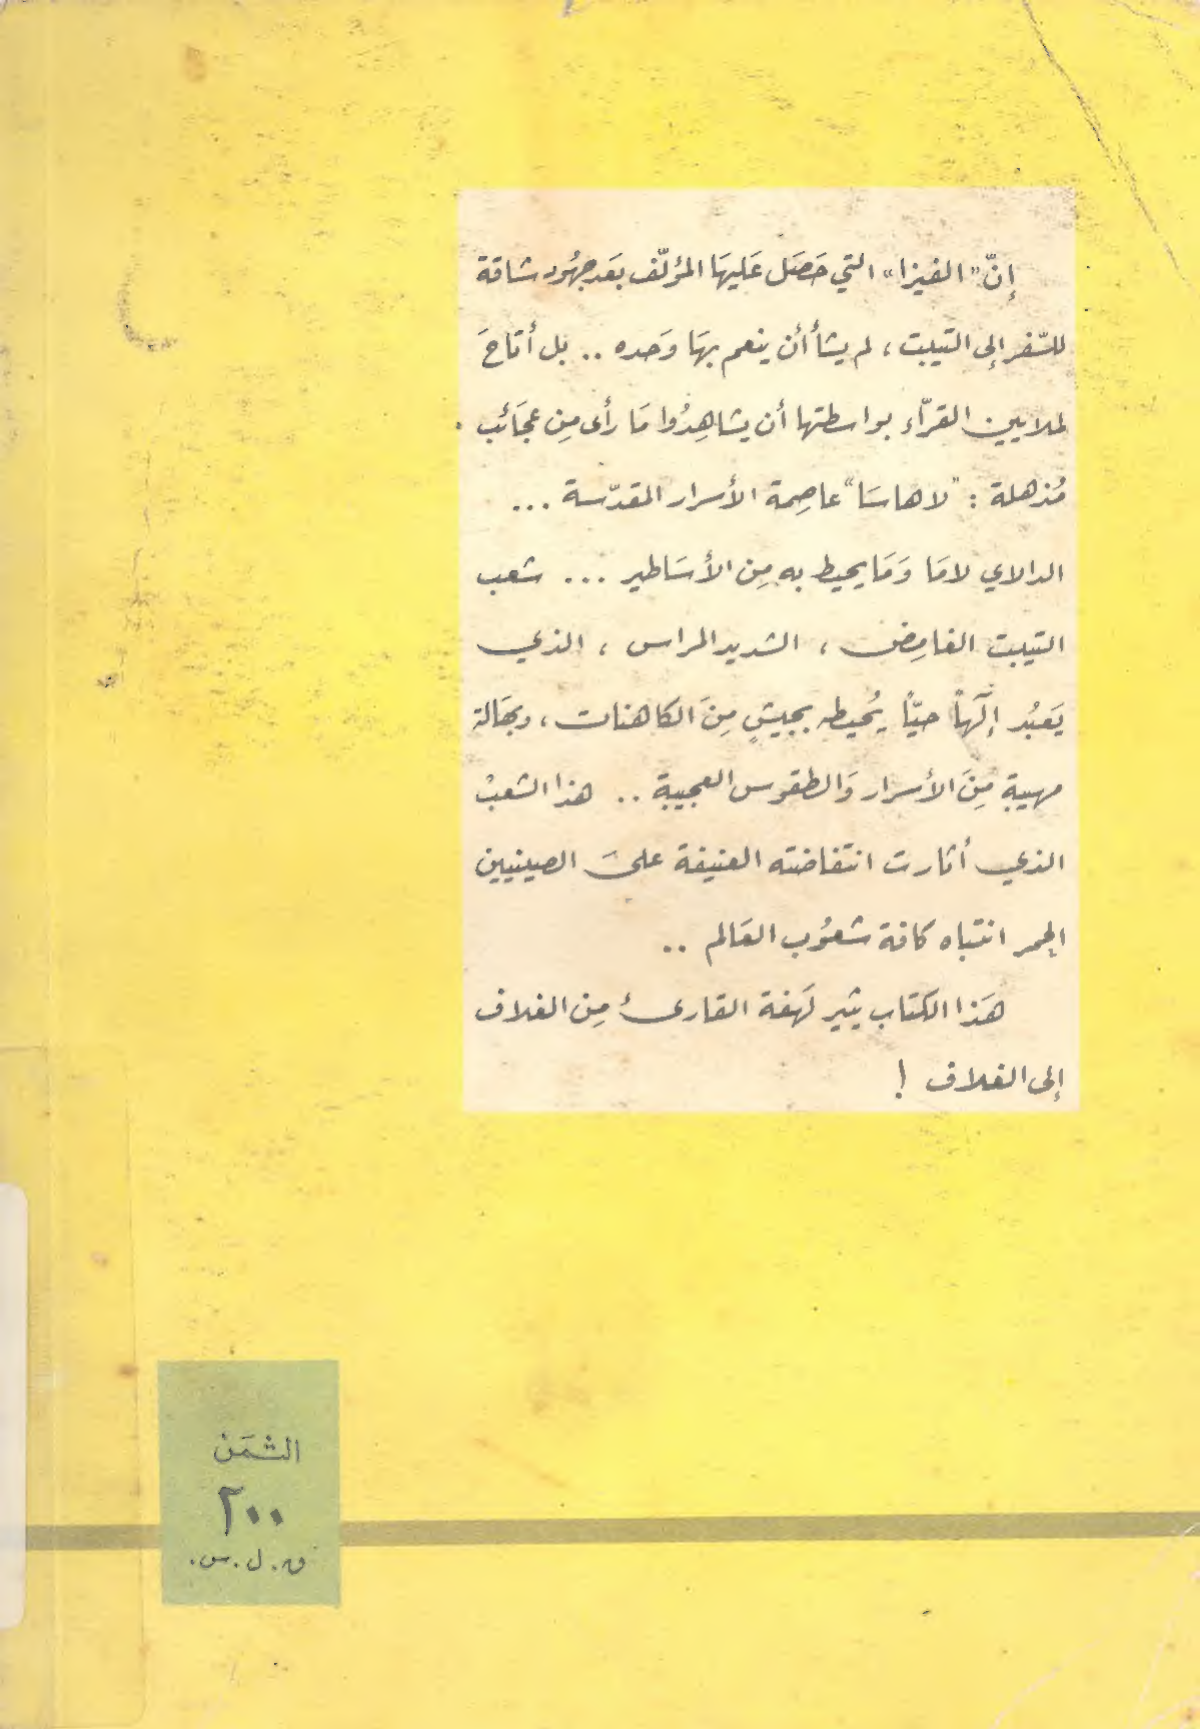 إنّ "الفيزا" التي حَصَل عَليهَا المؤلّف بَعَد جهُود شاقة
للسّفر إلى التيبت ، لم يشأ أن ينعم بهَا وَحده .. بل أتاحَ
لملايين القرّاء بواسطتها أن يشاهِدُوا مَا رأى مِن عجَائب
مُذهلة : "لاهاسَا" عاصِمة الأسرار المقدّسة ...
الدالاي لامَا وَمَا يحيط به مِن الأسَاطير ... شعب
التيبت الغامِض ، الشديد المراس ، الذي
يَعبُد إلَهاً حيّاً يُحيطه بجيشٍ مِنَ الكاهنات ، وبهَالة
مهيبة مِنَ الأسرار وَالطقوس العجيبة .. هذا الشعبْ
الذي أثارت انتفاضته العنيفة علىَ الصينيين
الحمر انتباه كافة شعوُب العَالم ..
هَذا الكتاب يثير لَهفة القارئ مِن الغلاف
إلى الغلاف !
الثمَن
٢٠٠
ق. ل. س.